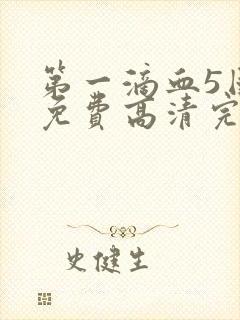 第一滴血5
免费高清完
史健生